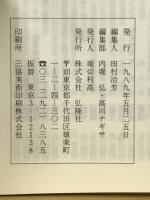 発行 一九八九年五月二五日
編集人 田村治芳
編集部 内堀 弘・高川ナギサ
発行人 堀切利高
発行所 株式会社 弘隆社
〒101 東京都千代田区猿楽町
一―二―四―三〇二
☎〇三―二九一―八三八五
振替 東京3―12138
印刷所 三協美術印刷株式会社